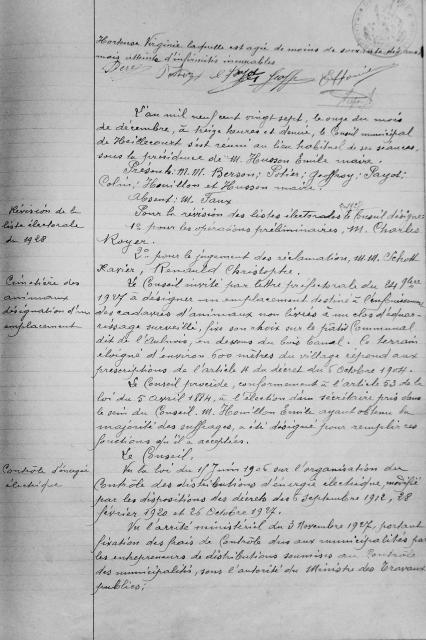 Hortense Virginie laquelle est agée de moins de soixante dix ans
mais atteinte d'infirmités incurables
L'an mil neuf cent vingt sept, le onze du mois
de décembre, à treize heures et demie, le Conseil municipal
de Heillecourt s'est réuni au lieu habituel de ses séances,
sous la présidence de M. Husson Emile maire.
Présents: M.M. Berson; Potier; Geoffroy; Payol;
Colin; Houillon et Husson maire.
Absent: M. Faux
Révision de la
liste électorale
de 1928
Pour la révision des listes électorales le Conseil désigne
1º pour les opérations préliminaires, M. Charles
Royer.
2º pour le jugement des réclamation, M.M. Schott
Xavier; Renauld Christophe.
Cimetière des
animaux
désignation d'un
emplacement
Le Conseil invité par lettre préfectorale du 24 9bre
1927 à désigner un emplacement destiné à l'enfouissement
des cadavres d'animaux non livrés à un clos d'équar-
rissage surveillé, fixe son choix sur le pâtis Communal
dit de l'Aulnois, en dessous du Canal. Ce terrain
éloigné d'environ 600 mètres du village répond aux
prescriptions de l'article 4 du décret du 6 Octobre 1904.
Le Conseil procède, conformément à l'article 53 de la
loi du 5 avril 1884, à l'élection d'un sécrétaire pris dans
le sein du Conseil. M. Houillon Emile ayant obtenu la
majorité des suffrages, a été désigné pour remplir ces
fonctions qu'il a acceptées.
Le Conseil;
Contrôle d'énergie
électrique
Vu la loi du 15 Juin 1906 sur l'organisation du
Contrôle des distributions d'énergie électrique, modifié
par les dispositions des décrets des Septembre 1912, 28
février 1920 et 26 Octobre 1927.
Vu l'arrêté ministériel du 3 Novembre 1927, portant
fixation des frais de Contrôle dus aux municipalités par
les entrepreneurs de distributions soumises au Contrôle
des municipalités, sous l'autorité du Ministre des Travaux
publics;